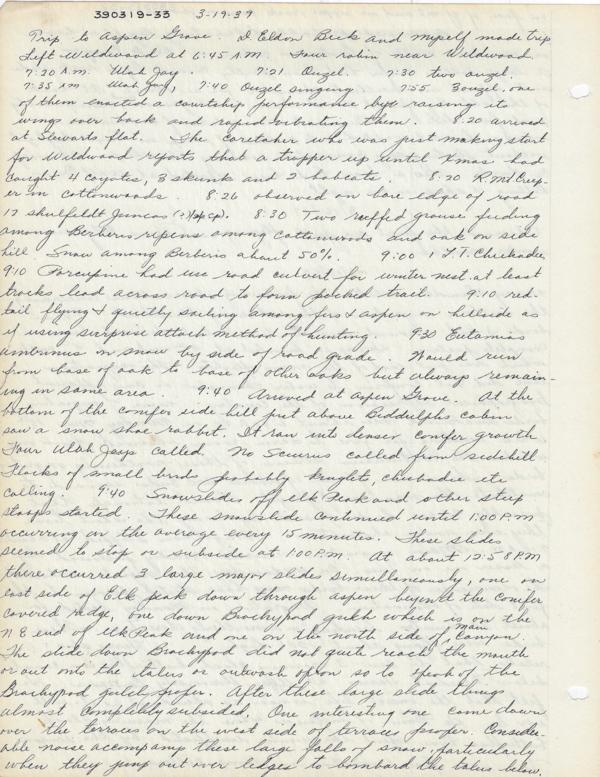 390319-33 3-19-39
Trip to Aspen Grove. D Eldon Beck and myself made trip
Left Wildwood at 6:45 A.M. Four robin near Wildwood
7:20 A.M. Utah Jay. 7:21 Ouzel. 7:30 two ouzel.
7:35 am Utah Jay, 7:40 Ouzel singing. 7:55 3 ouzel, one
of them enacted a courtship performance by raising its
wings over back and rapid vibrating them. 8:20 arrived
at Stewarts flat. The caretaker who was just making start
for Wildwood reports that a trapper up until Xmas had
caught 4 coyotes, 3 skunk and 2 bobcats. 8:20 R. Mt Creep-
er in cottonwoods. 8:26 observed on bare edge of road
17 shulfeldt Juncos 8:30 Two ruffed grouse feeding
among Berberis repens among cottonwoods and oak on side
hill. Snow among Berberis about 50%. 9:00 1 L.T. Chickadee
9:10 Porcupine had use road culvert for winter nest. at least
tracks lead across road to form packed trail. 9:10 red-
tail flying & quietly sailing among firs & aspen on hillside as
if using surprise attack method of hunting. 9:30 Eutamias
on snow by side of road grade. Would run
from base of oak to base of other oaks but always remain-
ing in same area. 9:40 Arrived at Aspen Grove. At the
bottom of the conifer side hill just above Biddulphs cabin
saw a snow shoe rabbit. It ran into denser conifer growth
Four Utah Jays called. No Sciurus called from sidehill
Flocks of small birds probably kinglet, chickadee etc
calling. 9:40 Snowslides off elk Peak and other steep
sloops started. These snowslide continued until 1:00 P.M
occurring on the average every 15 minutes. These slides
seemed to stop or subside at 1:00 P.M. At about 12:58 P.M
there occurred 3 large major slides simultaneously, one on
east side of Elk peak down through aspen beyond the conifer
covered ridge, one down Brachypod gulch which is on the
N E end of elk Peak and one on the north side of main Canyon.
The slide down Brachypod did not quite reach the mouth
or out onto the talus or outwash apron so to speak of the
Brachypod gulch proper. After these large slide things
almost completely subsided. One interesting one came down
over the terraces on the west side of terraces proper. Consider-
able noise accompany these large falls of snow, particularly
when they jump out over ledges to bombard the talus below.